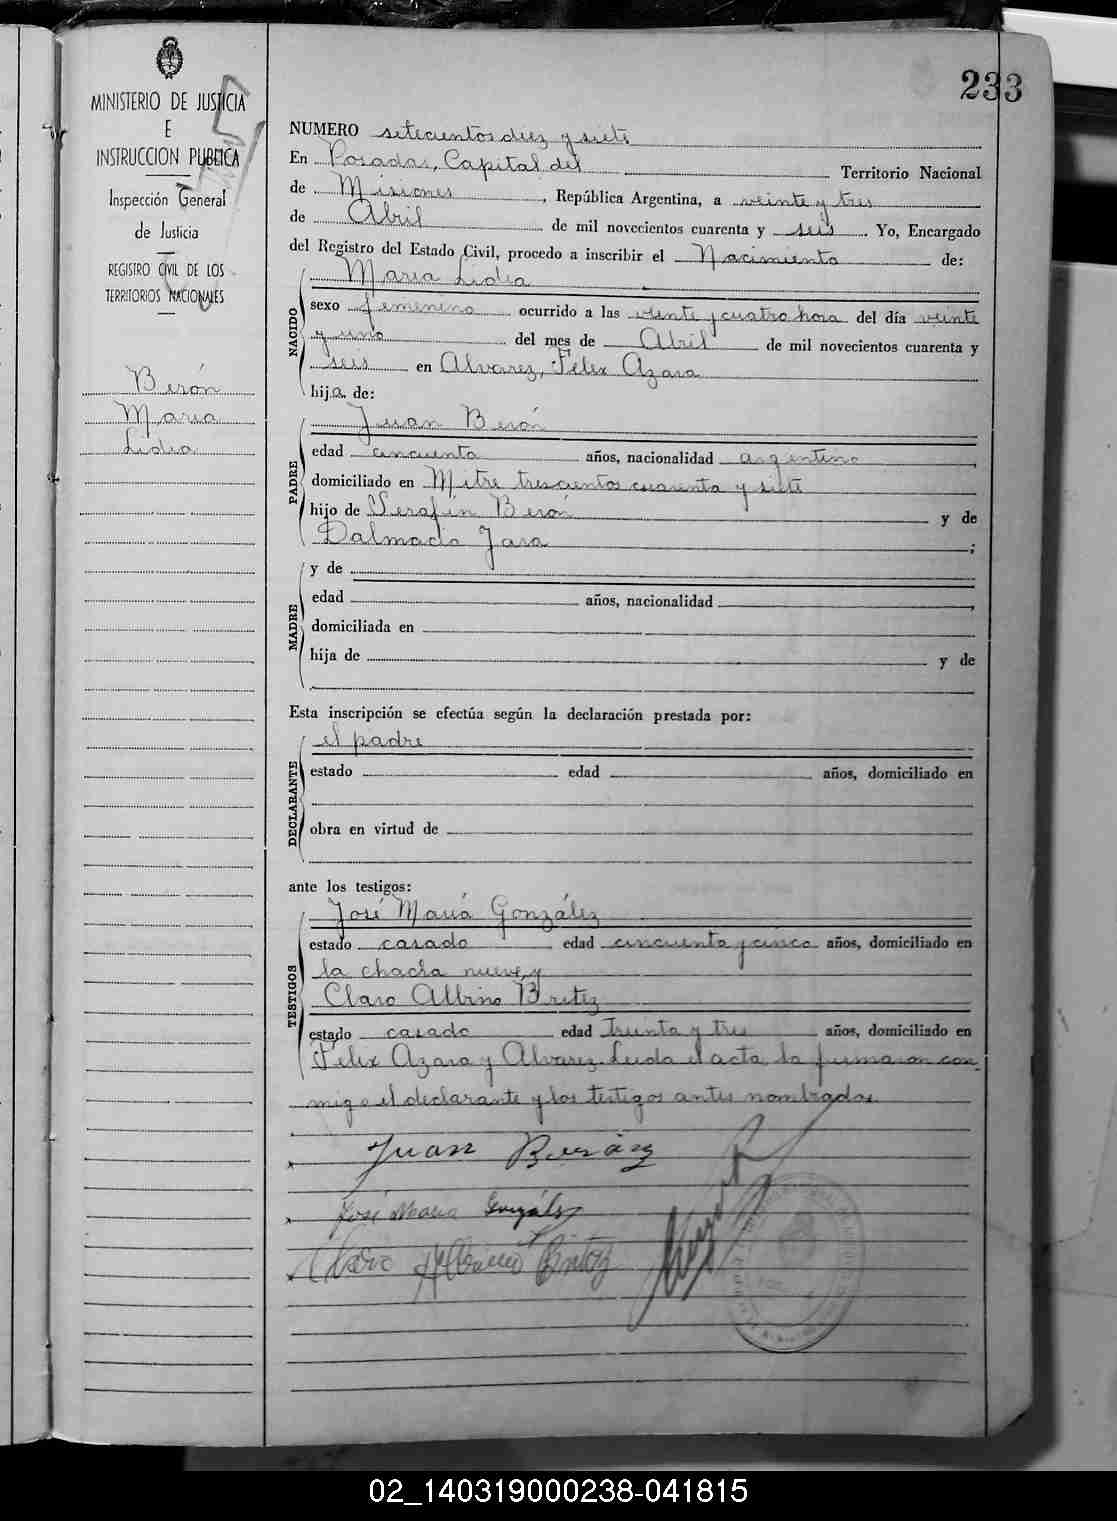 233
MINISTERIO DE JUSTICIA
E
INSTRUCCION PUBLICA
Inspección General
de Justicia
REGISTRO CIVIL DE LOS
TERRITORIOS NACIONALES
Berón
María
Lidia
NUMERO setecientos diez y siete
En Posadas, Capital del Territorio Nacional
de Misiones, República Argentina, a veinte y tres
de Abril de mil novecientos cuarenta y seis. Yo, Encargado
del Registro del Estado Civil, procedo a inscribir el Nacimiento de:
María Lidia
NACIDO
sexo femenino ocurrido a las veinte y cuatro hora del día veinte
y uno del mes de Abril de mil novecientos cuarenta y
seis en Alvarez, Félix Azara
hija de:
Juan Berón
PADRE
edad cincuenta años, nacionalidad argentino,
domiciliado en Mitre trescientos cuarenta y siete
hijo de Serafin Berón y de
Dalmacia Jara;
y de
MADRE
edad años, nacionalidad,
domiciliada en
hija de y de
Esta inscripción se efectúa según la declaración prestada por:
el padre
DECLARANTE
estado edad años, domiciliado en
obra en virtud de
ante los testigos:
José María González
TESTIGOS
estado casado edad cincuenta y cinco años, domiciliado en
la chacra nueve, y
Claro Albino Britez
estado casado edad treinta y tres años, domiciliado en
Félix Azara y Alvarez. Leida el acta la firmaron con-
migo el declarante y los testigos antes nombrados.
Juan Berón
José María Gonzáls
02_140319000238-041815